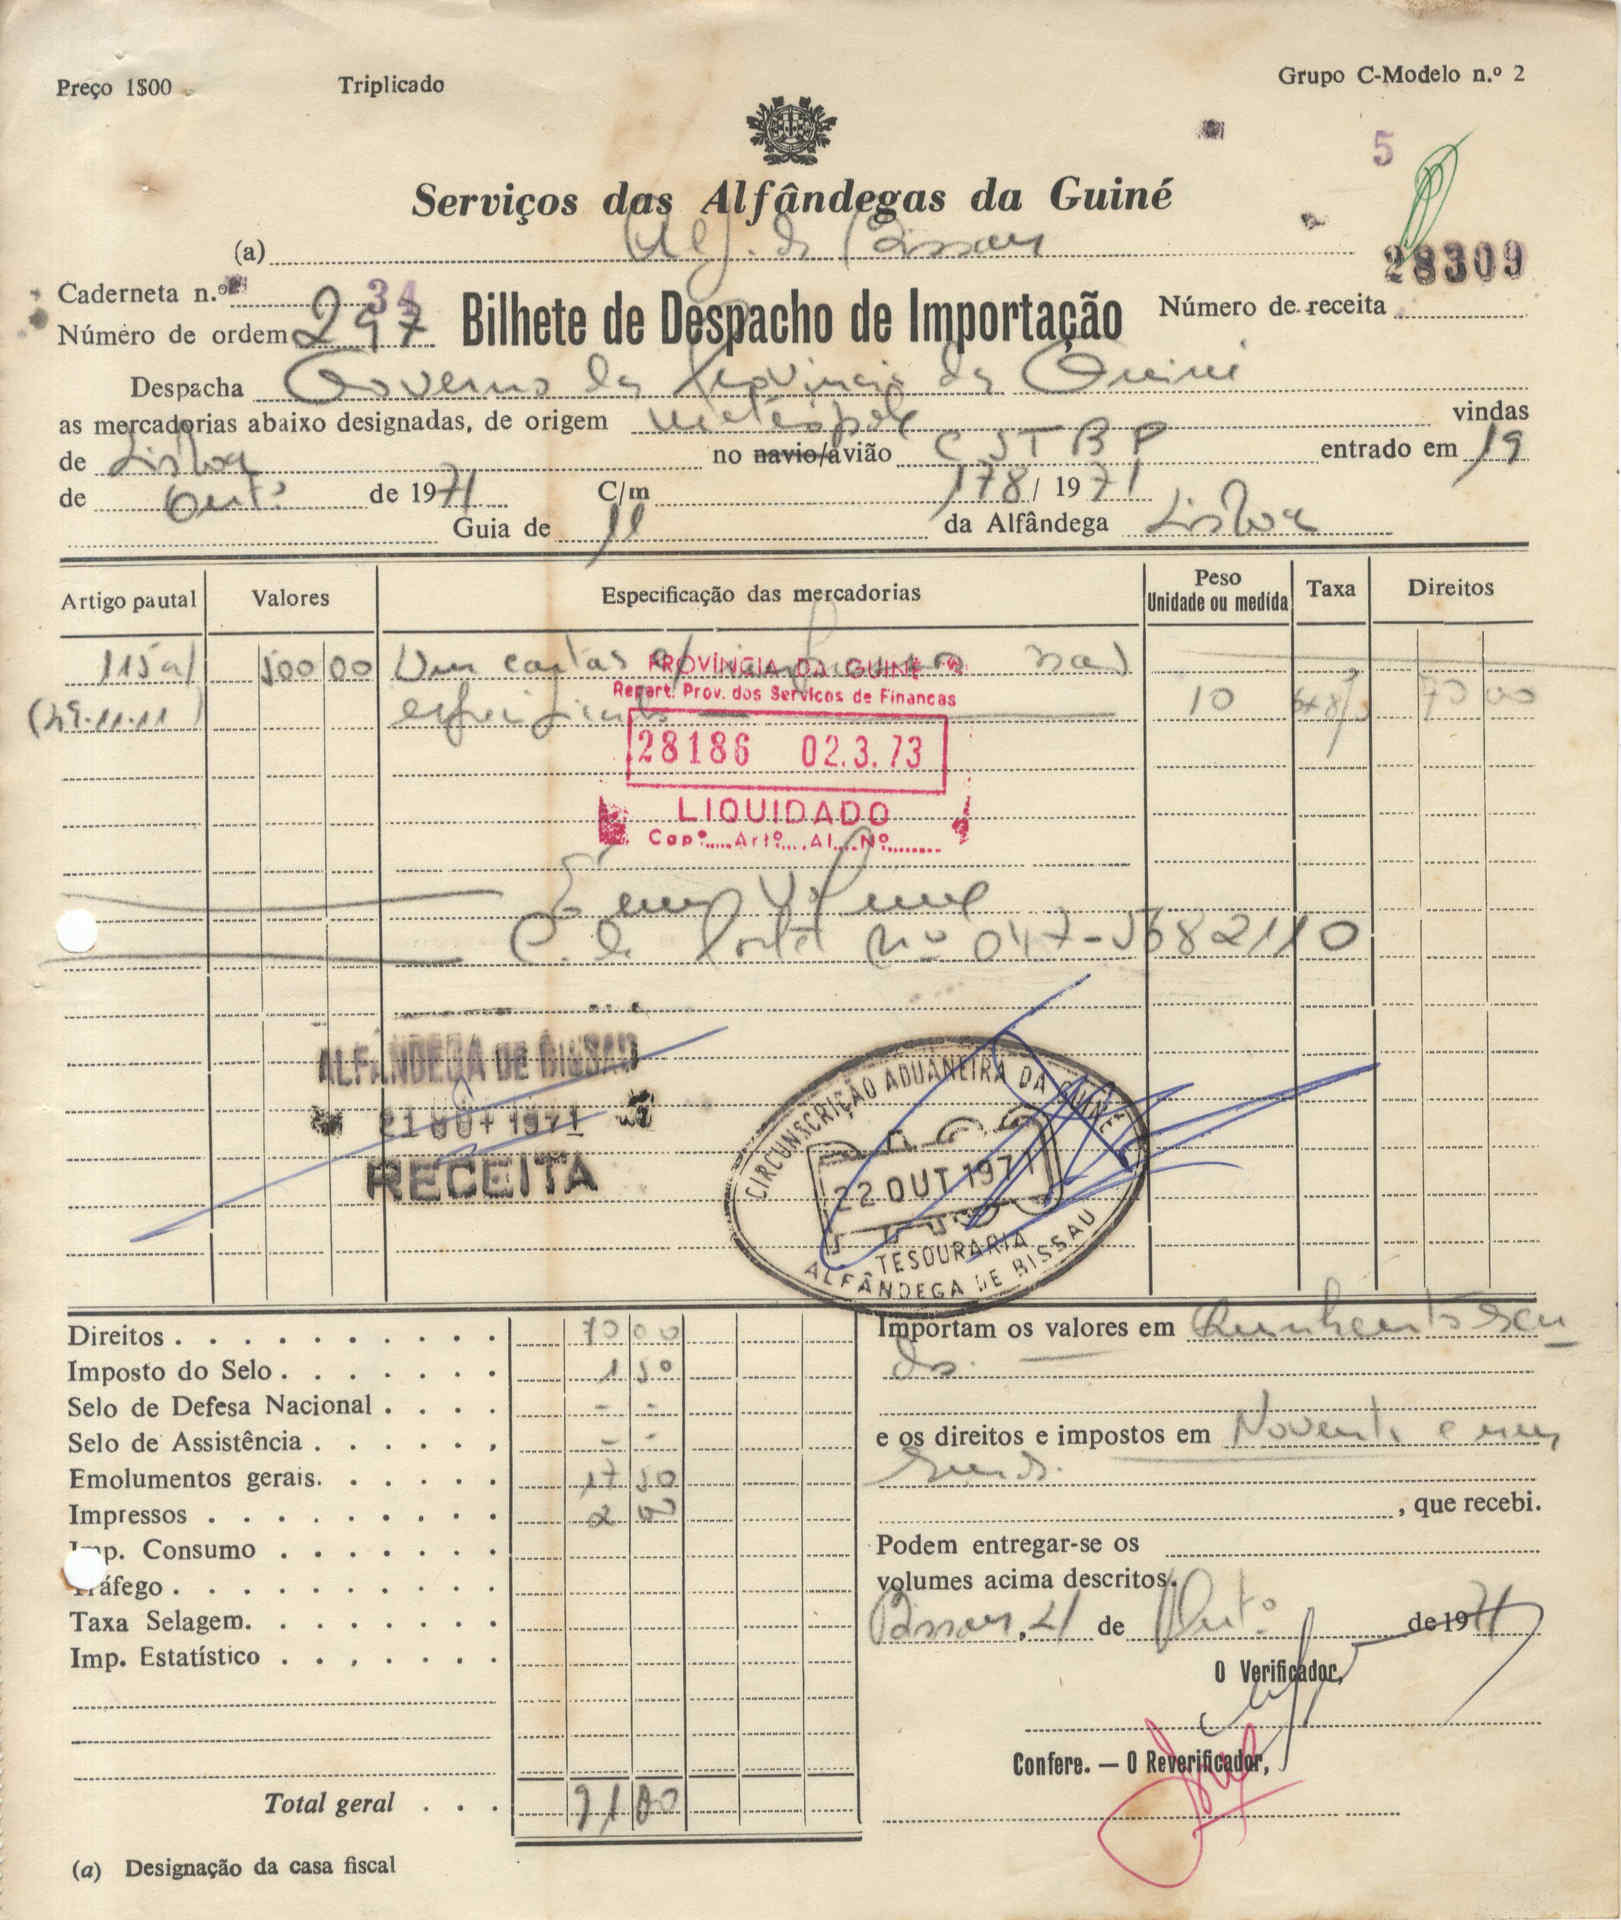 Preço 1$00 Triplicado Grupo C-Modelo n.º 2
5
Serviços das Alfândegas da Guiné
(a) Alf. de Bissau
28309
Caderneta n.º 34
Número de ordem 297 Bilhete de Despacho de Importação Número de receita
Despacha Governo da Província da Guiné
as mercadorias abaixo designadas, de origem Metrópole vindas
de Lisboa no navio/avião CSTBP entrado em 19
de Outº de 1971 C/m 178/1971
Guia de 11 da Alfândega Lisboa
Artigo pautal Valores Especificação das mercadorias Peso Unidade ou medida Taxa Direitos
115 a/ 500 00 Um cartas c/ não
(49.11.11) especificados 10 00
PROVÍNCIA DA GUINÉ
Repart. Prov. dos Servicos de Financas
28186 02.3.73
LIQUIDADO
Capº..... Artº.... Al.... Nº........
Em volume
C. de Porte nº 047-5682110
ALFÂNDEGA DE BISSAU
21 OUT 1971
RECEITA
CIRCUNSCRIÇÃO ADUANEIRA DA GUINÉ
22 OUT 1971
TESOURARIA
ALFÂNDEGA DE BISSAU
Direitos . . . . . . . . . . 70 00
Imposto do Selo . . . . . . . 1 50
Selo de Defesa Nacional . . . . - -
Selo de Assistência . . . . . . - -
Emolumentos gerais. . . . . . 17 50
Impressos . . . . . . . . . 2 00
Imp. Consumo . . . . . . .
Tráfego . . . . . . . . . .
Taxa Selagem. . . . . . . .
Imp. Estatístico . . . . . . .
Total geral . . . 91 00
(a) Designação da casa fiscal
Importam os valores em Quinhentos escu
dos.
e os direitos e impostos em Noventa e um
escudos.
, que recebi.
Podem entregar-se os
volumes acima descritos.
Bissau, 21 de Outº de 1971
O Verificador,
Confere. — O Reverificador,